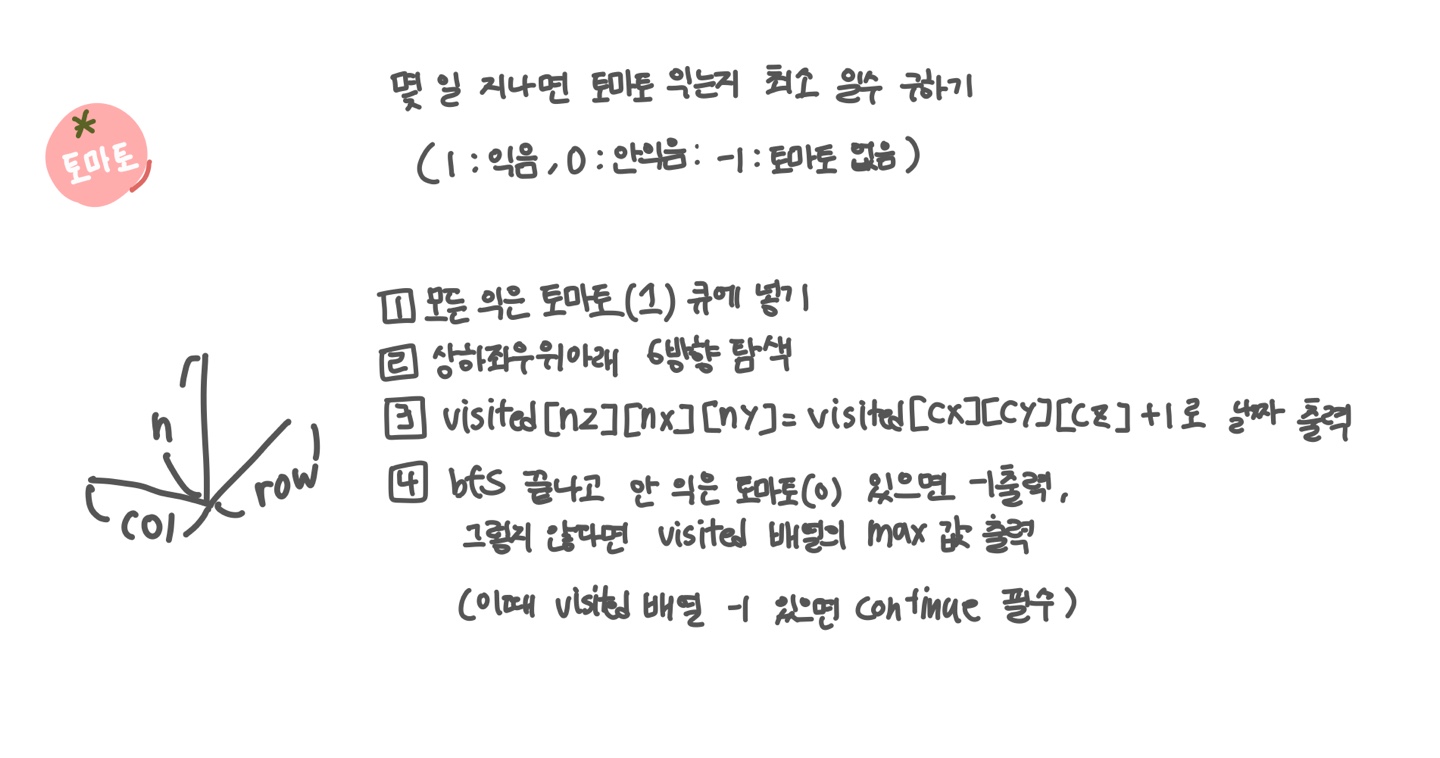 몇 일 지나면 토마토 익는지 최소 일수 구하기
토마토
(1:익음, 0:안익음: -1:토마토 없음)
1 모든 익은 토마토(1) 큐에 넣기
2 상하좌우위아래 6방향 탐색
3 visited[nz][nx][ny]=visited[cx][cy][cz]+1로 날짜 출력
4 bfs 끝나고 안 익은 토마토(0) 있으면 -1출력,
그렇지 않다면 visited 배열의 max 값 출력
(이때 visited 배열 -1 있으면 continue 필수)
n
row
col